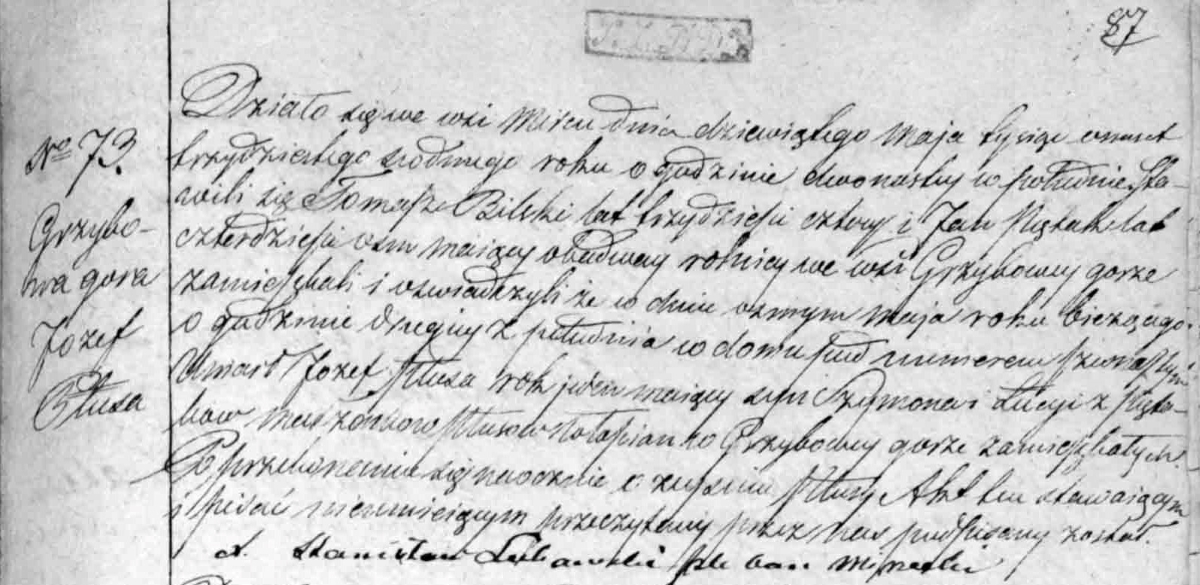 87
No 73.
Grzybo-
wa gora
Jozef
Plusa
Działo się we wsi Mircu dnia dziewiątego maja tysiąc osmset
trzydziestego siodmego roku o godzinie dwonastey w południe Sta-
wili się Tomasz Bilski lat trzydziesci cztery i Jan lat
czterdziesci osm maiący obadway rolnicy we wsi Grzybowey gorze
zamieszkali i oswiadczyli że w dniu osmym maja roku bieżącego
o godzinie drugiey z południa w domu pod numerem
Umarł Jozef Plusa rok jeden maiący syn Szymona i Łucyi z
kow małżonkow Plusow w Grzybowey gorze zamieszkałych
Po przekonaniu się naocznie o zeysciu Plusy Akt ten stawaiącym
i pisać nieumieiącym przeczytany przez nas podpisany został.
X. Stanisław